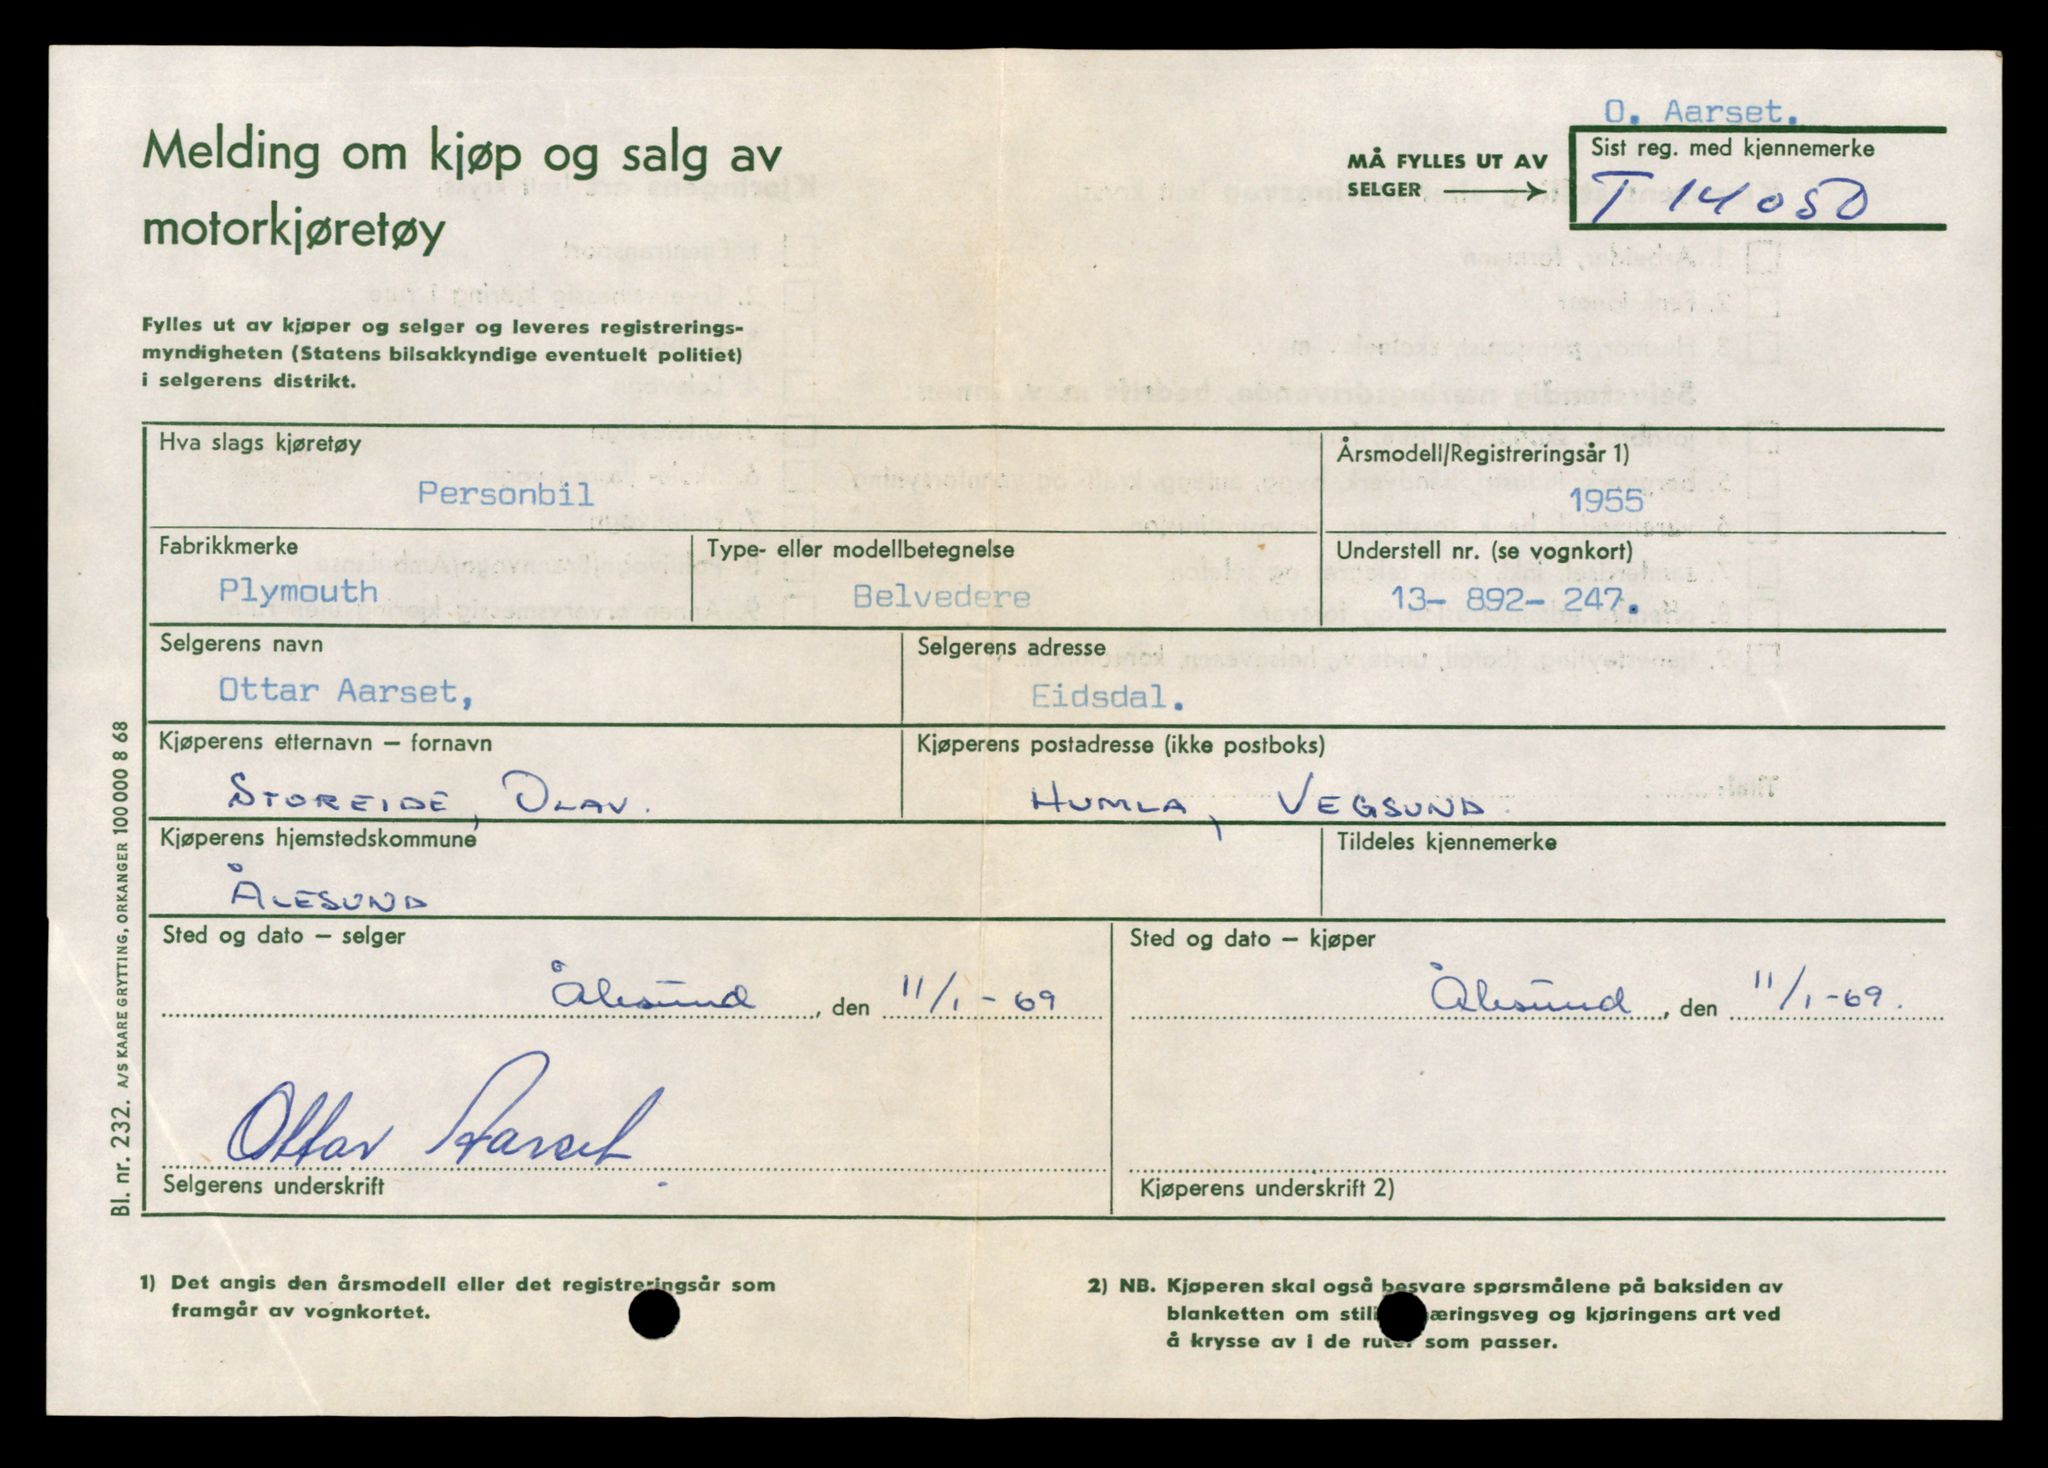 O. Aarset.
Melding om kjøp og salg av
motorkjøretøy
MÅ FYLLES UT AV
SELGER
Sist reg. med kjennemerke
T 14050
Fylles ut av kjøper og selger og leveres registrerings-
myndigheten (Statens bilsakkyndige eventuelt politiet)
i selgerens distrikt.
Hva slags kjøretøy
Personbil
Årsmodell/Registreringsår 1)
1955
Fabrikkmerke
Plymouth
Type- eller modellbetegnelse
Belvedere
Understell nr. (se vognkort)
13- 892- 247.
Selgerens navn
Ottar Aarset,
Selgerens adresse
Eidsdal.
Kjøperens etternavn – fornavn
STOREIDE, OLAV.
Kjøperens postadresse (ikke postboks)
HUMLA, VEGSUND.
Kjøperens hjemstedskommune
ÅLESUND
Tildeles kjennemerke
Sted og dato – selger
Ålesund, den 11/1-69
Sted og dato – kjøper
Ålesund, den 11/1-69.
Ottar Aarset
Selgerens underskrift
Kjøperens underskrift 2)
Bl. nr. 232. A/S KAARE GRYTTING, ORKANGER 100 000 8 68
1) Det angis den årsmodell eller det registreringsår som
framgår av vognkortet.
2) NB. Kjøperen skal også besvare spørsmålene på baksiden av
blanketten om stilli næringsveg og kjøringens art ved
å krysse av i de ruter som passer.